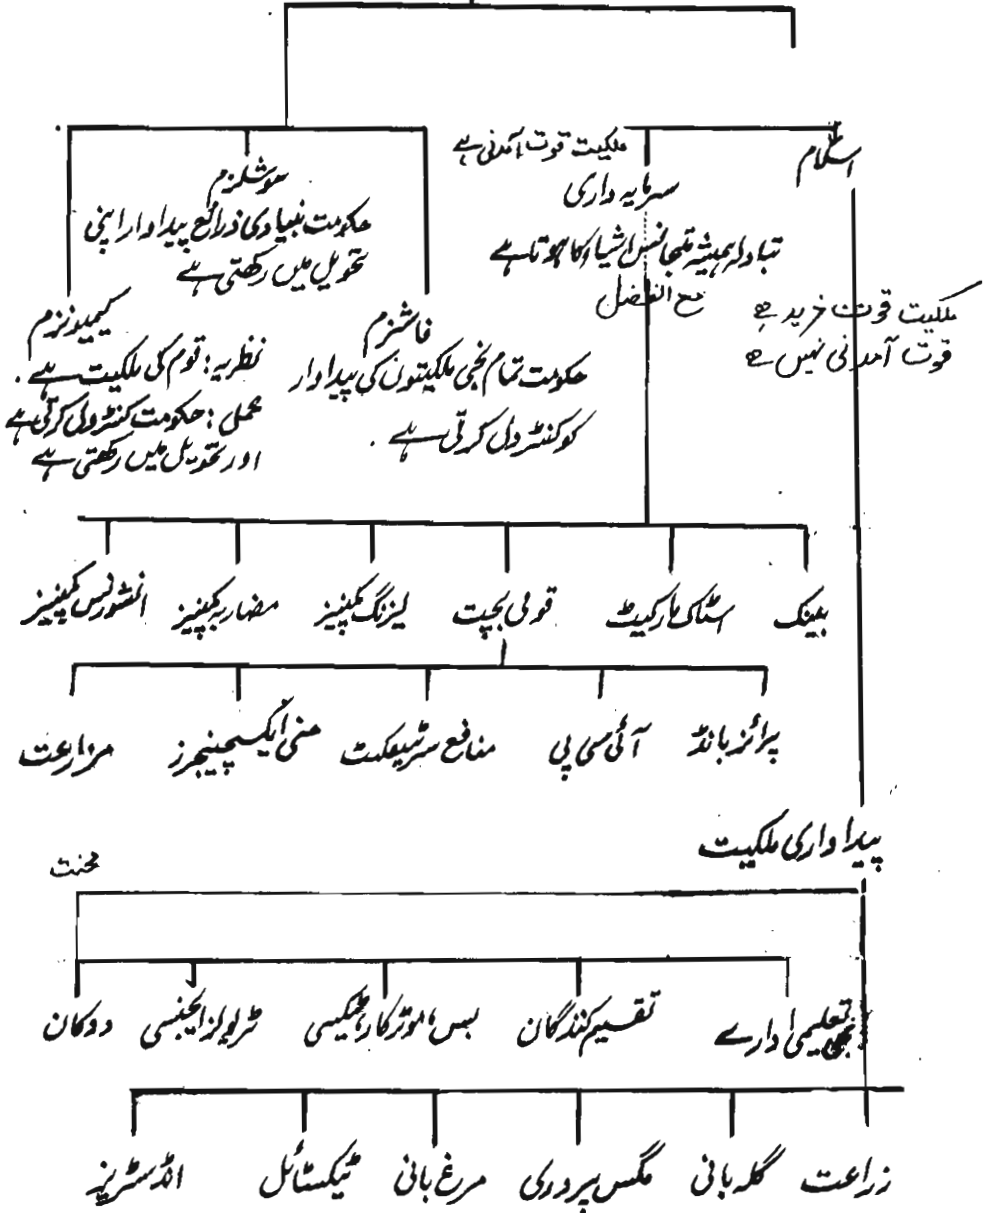 اسلام
ملکیت قوت آمدنی ہے
سرمایہ داری
تبادلہ ہمیشہ متجانس اشیاء کا ہوتا ہے
مع الفضل
ملکیت قوت خرید ہے
قوت آمدنی نہیں ہے
سوشلزم
حکومت بنیادی ذرائع پیداوار اپنی
تحویل میں رکھتی ہے
فاشزم
حکومت تمام نجی ملکیتوں کی پیداوار
کو کنٹرول کرتی ہے ۔
کیمیونزم
نظریہ : قوم کی ملکیت ہے ۔
عمل : حکومت کنٹرول کرتی ہے
اور تحویل میں رکھتی ہے
بینک
سٹاک مارکیٹ
قومی بچت
لیزنگ کمپنیز
مضاربہ کمپنیز
انشورنس کمپنیز
پرائز بانڈ
آئی سی پی
منافع سرٹیفکیٹ
منی ایکسچینجرز
مزارعت
پیداواری ملکیت
محنت
نجی تعلیمی ادارے
تقسیم کنندگان
بس، موٹر کار، ٹیکسی
ٹریولز ایجنسی
دوکان
زراعت
گلہ بانی
مگس پروری
مرغ بانی
ٹیکسٹائل
انڈسٹریز